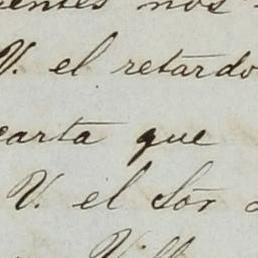 nos
V. el retardo
carta que
V. el Sor